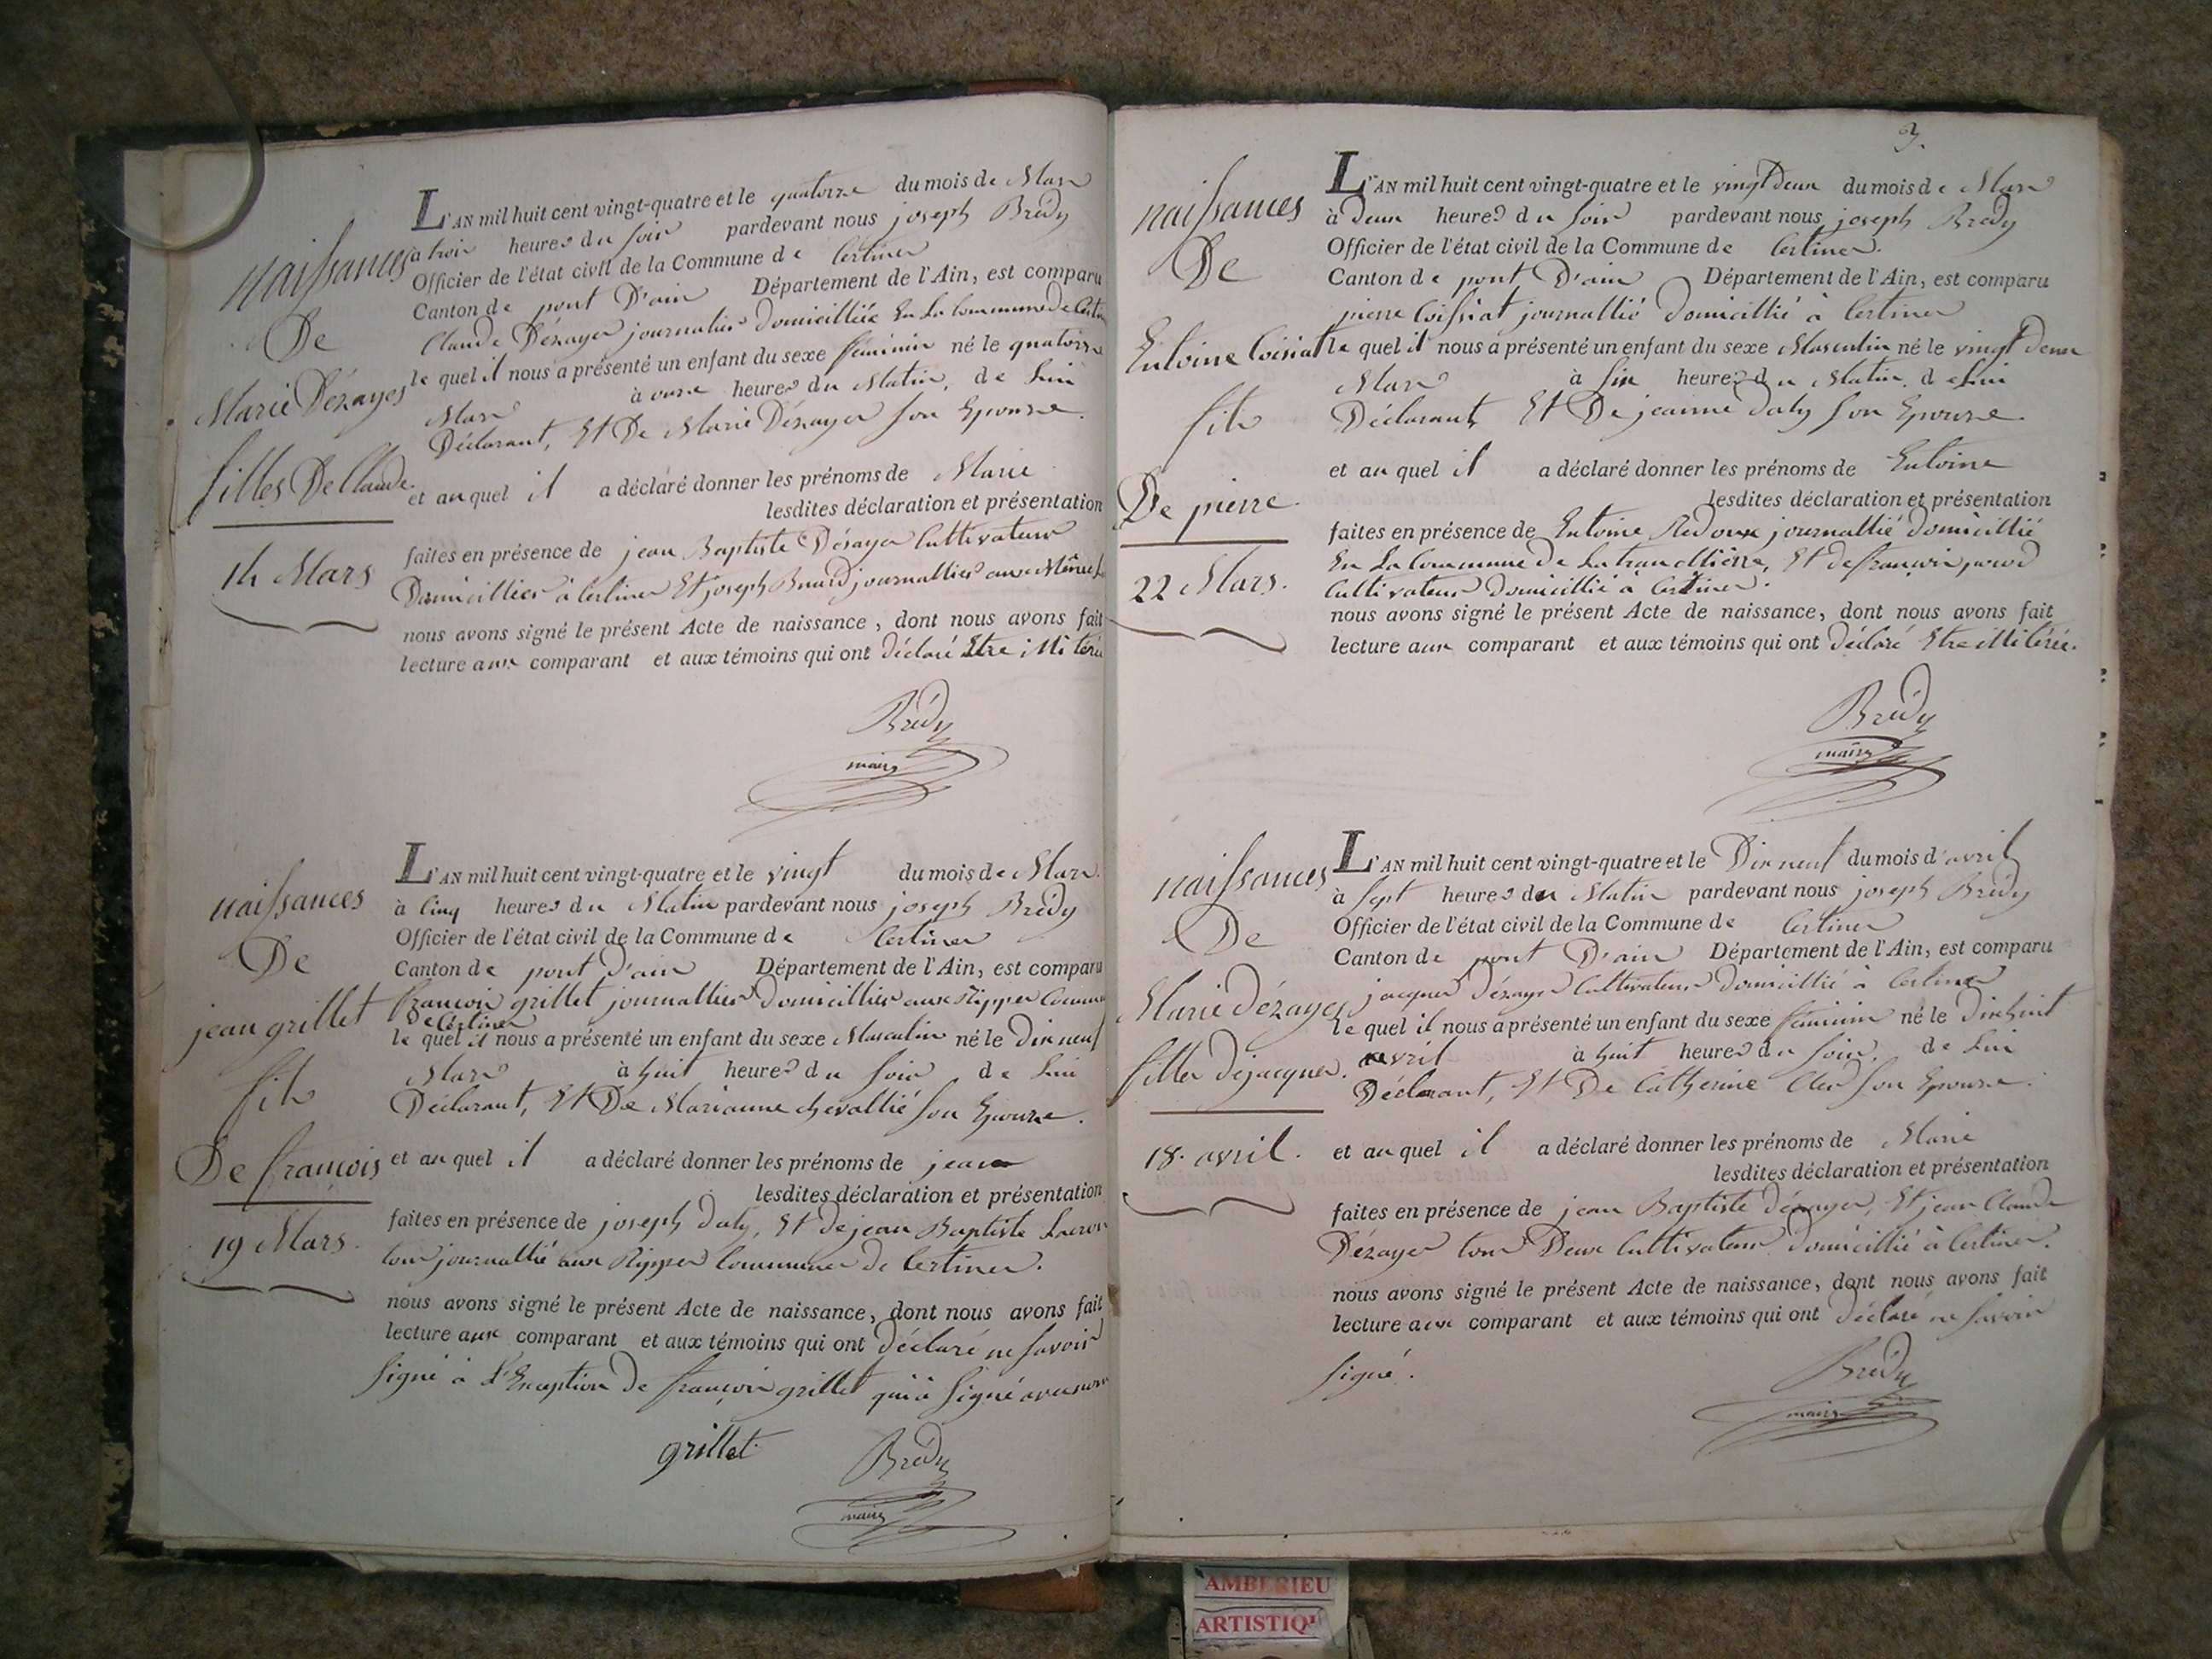 naissances
De
Marie Dézayes
filles De Claude
14 Mars
L'AN mil huit cent vingt-quatre et le quatorze du mois de Mars
à trois heures du soir pardevant nous joseph Brédy
Officier de l'état civil de la Commune de Certines
Canton de pont D'ain Département de l'Ain, est comparu
Claude Dézayes journalier domicilliée En La Commune de
le quel il nous a présenté un enfant du sexe féminin né le quatorze
Mars à onze heures du Matin, de Lui
Déclarant, Et De Marie Dézayes son Epouse.
et au quel il a déclaré donner les prénoms de Marie
lesdites déclaration et présentation
faites en présence de jean Baptiste Désayes Cultivateur
Domicilliés à Certines Et joseph journallier
nous avons signé le présent Acte de naissance, dont nous avons fait
lecture aux comparant et aux témoins qui ont déclaré Etre
Brédy
maire
naissances
De
jean grillet
fils
De françois
19 Mars.
L'AN mil huit cent vingt-quatre et le vingt du mois de Mars.
à Cinq heures du Matin pardevant nous joseph Brédy
Officier de l'état civil de la Commune de Certines
Canton de pont d'ain Département de l'Ain, est comparu
françois grillet journallier domicillier aux Rippes Commune
de Certines
le quel il nous a présenté un enfant du sexe Masculin né le Dix neuf
Mars à huit heures du soir de Lui
Déclarant, Et De Marianne chevallié son Epouse.
et au quel il a déclaré donner les prénoms de jean
lesdites déclaration et présentation
faites en présence de joseph daly, Et de jean Baptiste
journallié aux Rippes Commune de Certines.
nous avons signé le présent Acte de naissance, dont nous avons fait
lecture aux comparant et aux témoins qui ont déclaré ne savoir
signé à L'Exception de françois grillet qui à signé avec nous
grillet
Brédy
maire
3.
naissances
De
Entoine Coisiat
fils
De pierre.
22 Mars.
L'AN mil huit cent vingt-quatre et le vingt deux du mois de Mars
à deux heures du soir pardevant nous joseph Brédy
Officier de l'état civil de la Commune de Certines.
Canton de pont D'ain Département de l'Ain, est comparu
pierre Coissiat journallié domicillié à Certines
le quel il nous a présenté un enfant du sexe Masculin né le vingt deux
Mars à six heures du Matin. de Lui
Déclarant, Et De jeanne daly son Epouse.
et au quel il a déclaré donner les prénoms de Entoine
lesdites déclaration et présentation
faites en présence de Entoine journallié domicillié
En La Commune de La tranclière, Et de françois
Cultivateur domicillié à Certines.
nous avons signé le présent Acte de naissance, dont nous avons fait
lecture aux comparant et aux témoins qui ont déclaré Etre
Brédy
maire
naissances
De
Marie dézayes
filles de jacques.
18. avril.
L'AN mil huit cent vingt-quatre et le Dix neuf du mois d'avril
à sept heures du Matin pardevant nous joseph Brédy
Officier de l'état civil de la Commune de Certines
Canton de pont D'ain Département de l'Ain, est comparu
jacques dézayes Cultivateur domicillié à Certines
le quel il nous a présenté un enfant du sexe féminin né le dixhuit
avril à huit heures du soir. de Lui
Déclarant, Et De Catherine son Epouse.
et au quel il a déclaré donner les prénoms de Marie
lesdites déclaration et présentation
faites en présence de jean Baptiste dézayes, Et jean Claude
Dézayes tous Deux Cultivateur domicillié à Certines.
nous avons signé le présent Acte de naissance, dont nous avons fait
lecture aux comparant et aux témoins qui ont déclaré ne savoir
signé.
Brédy
maire
AMBERIEU
ARTISTIQU